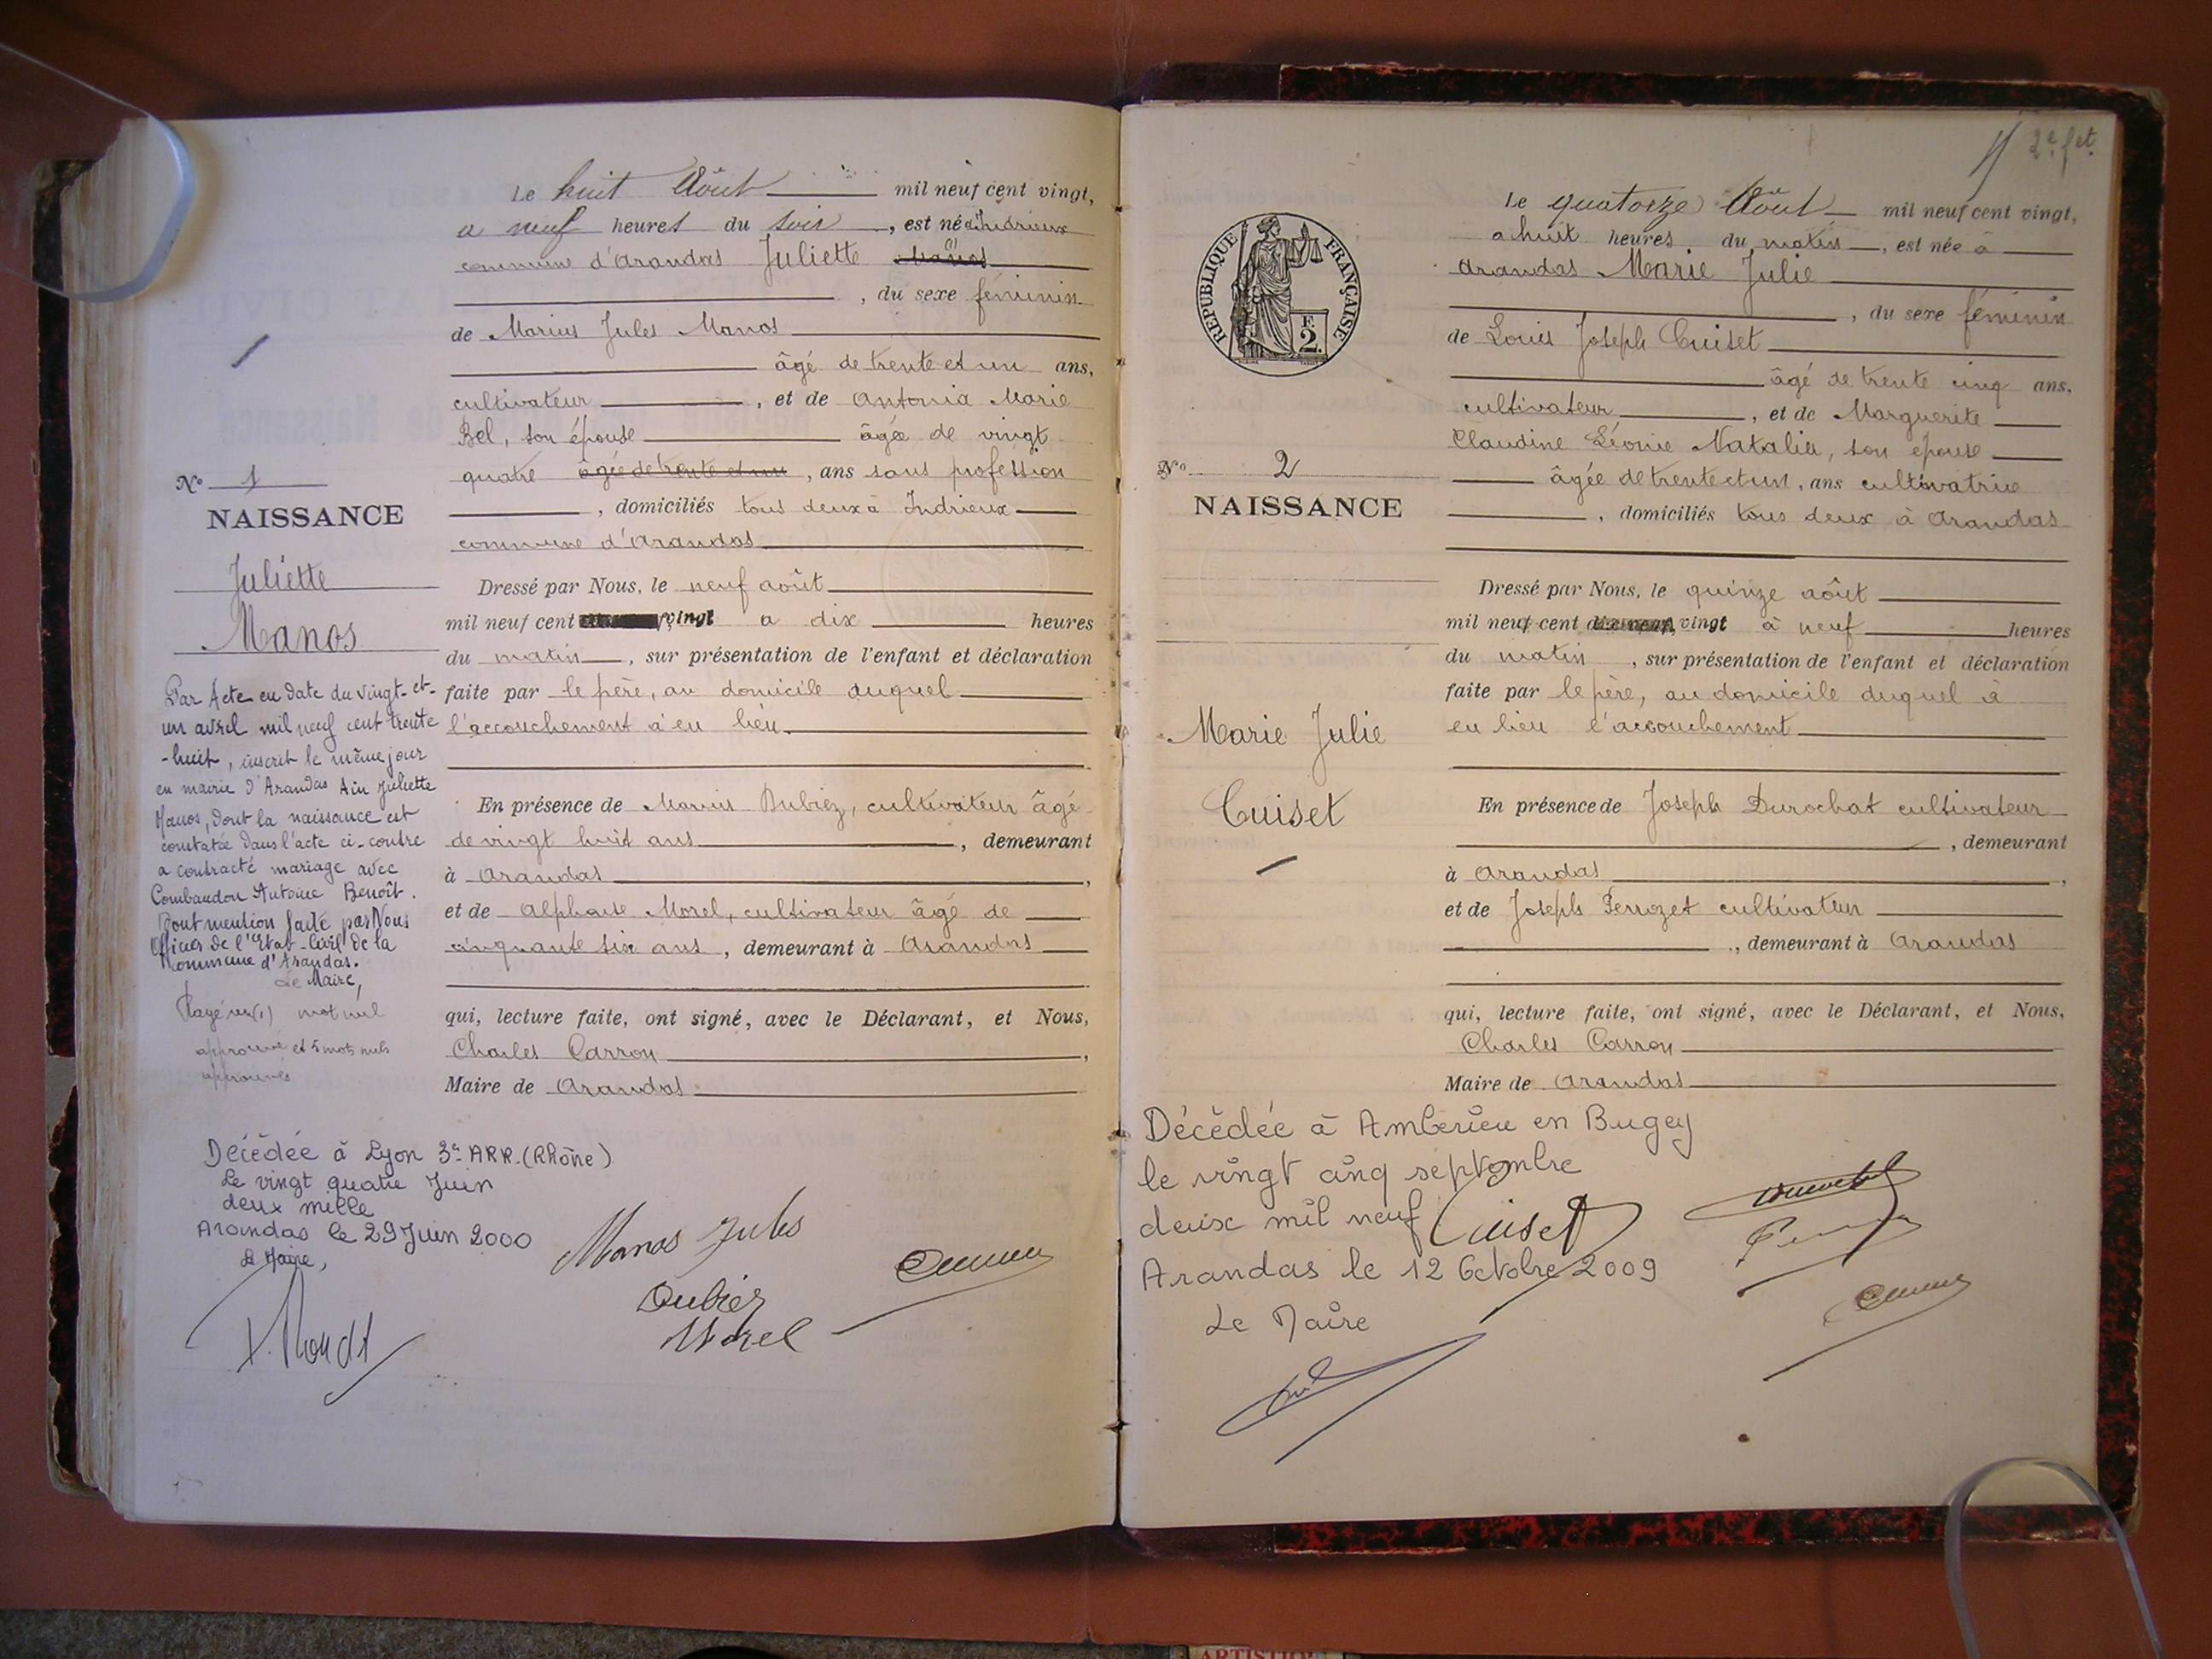 Le huit Août mil neuf cent vingt,
a neuf heures du soir, est née à Indrieux
commune d'Arandas Juliette Manos (1)
, du sexe féminin
de Marius Jules Manos
âgé de trente et un ans,
cultivateur, et de Antonia Marie
Bel, son épouse âgée de vingt
quatre âgée de trente et un, ans sans profession
, domiciliés tous deux à Indrieux
commune d'Arandas
Dressé par Nous, le neuf août
mil neuf cent vingt a dix heures
du matin, sur présentation de l'enfant et déclaration
faite par le père, au domicile duquel
l'accouchement a eu lieu.
En présence de Marius Dubiez, cultivateur âgé
de vingt huit ans, demeurant
à Arandas,
et de Alphonse Morel, cultivateur âgé de
cinquante six ans, demeurant à Arandas
qui, lecture faite, ont signé, avec le Déclarant, et Nous,
Charles Carron,
Maire de Arandas
N° 1
NAISSANCE
Juliette
Manos
Par Acte en date du vingt-et-
un avril mil neuf cent trente
-huit, inscrit le même jour
en mairie d'Arandas Ain Juliette
Manos, dont la naissance est
constatée dans l'acte ci-contre
a contracté mariage avec
Combaudon Antoine Benoît.
Dont mention faite par Nous
Officier de l'Etat-Civil de la
Commune d'Arandas.
Le Maire,
Rayé un (1) mot nul
approuvé et 5 mots nuls
approuvés
Décédée à Lyon 3e ARR. (Rhône)
Le vingt quatre Juin
deux mille
Arandas le 29 Juin 2000
Le Maire,
Manos Jules
Dubiez
Morel
2e fet.
RÉPUBLIQUE FRANÇAISE
F.
2.
Le quatorze Août mil neuf cent vingt,
a huit heures du matin, est née à
Arandas Marie Julie
, du sexe féminin
de Louis Joseph Cuiset
âgé de trente cinq ans,
cultivateur, et de Marguerite
Claudine Léonie Natalia, son épouse
âgée de trente et un, ans cultivatrice
, domiciliés tous deux à Arandas
Dressé par Nous, le quinze août
mil neuf cent dix-neuf, vingt à neuf heures
du matin, sur présentation de l'enfant et déclaration
faite par le père, au domicile duquel à
eu lieu l'accouchement
En présence de Joseph Durochat cultivateur
, demeurant
à Arandas,
et de Joseph Perrozet cultivateur
, demeurant à Arandas
qui, lecture faite, ont signé, avec le Déclarant, et Nous,
Charles Carron
Maire de Arandas
N° 2
NAISSANCE
Marie Julie
Cuiset
Décédée à Amberieu en Bugey
le vingt cinq septembre
deux mil neuf
Cuiset
Arandas le 12 Octobre 2009
Le Maire
ARTISTIQU